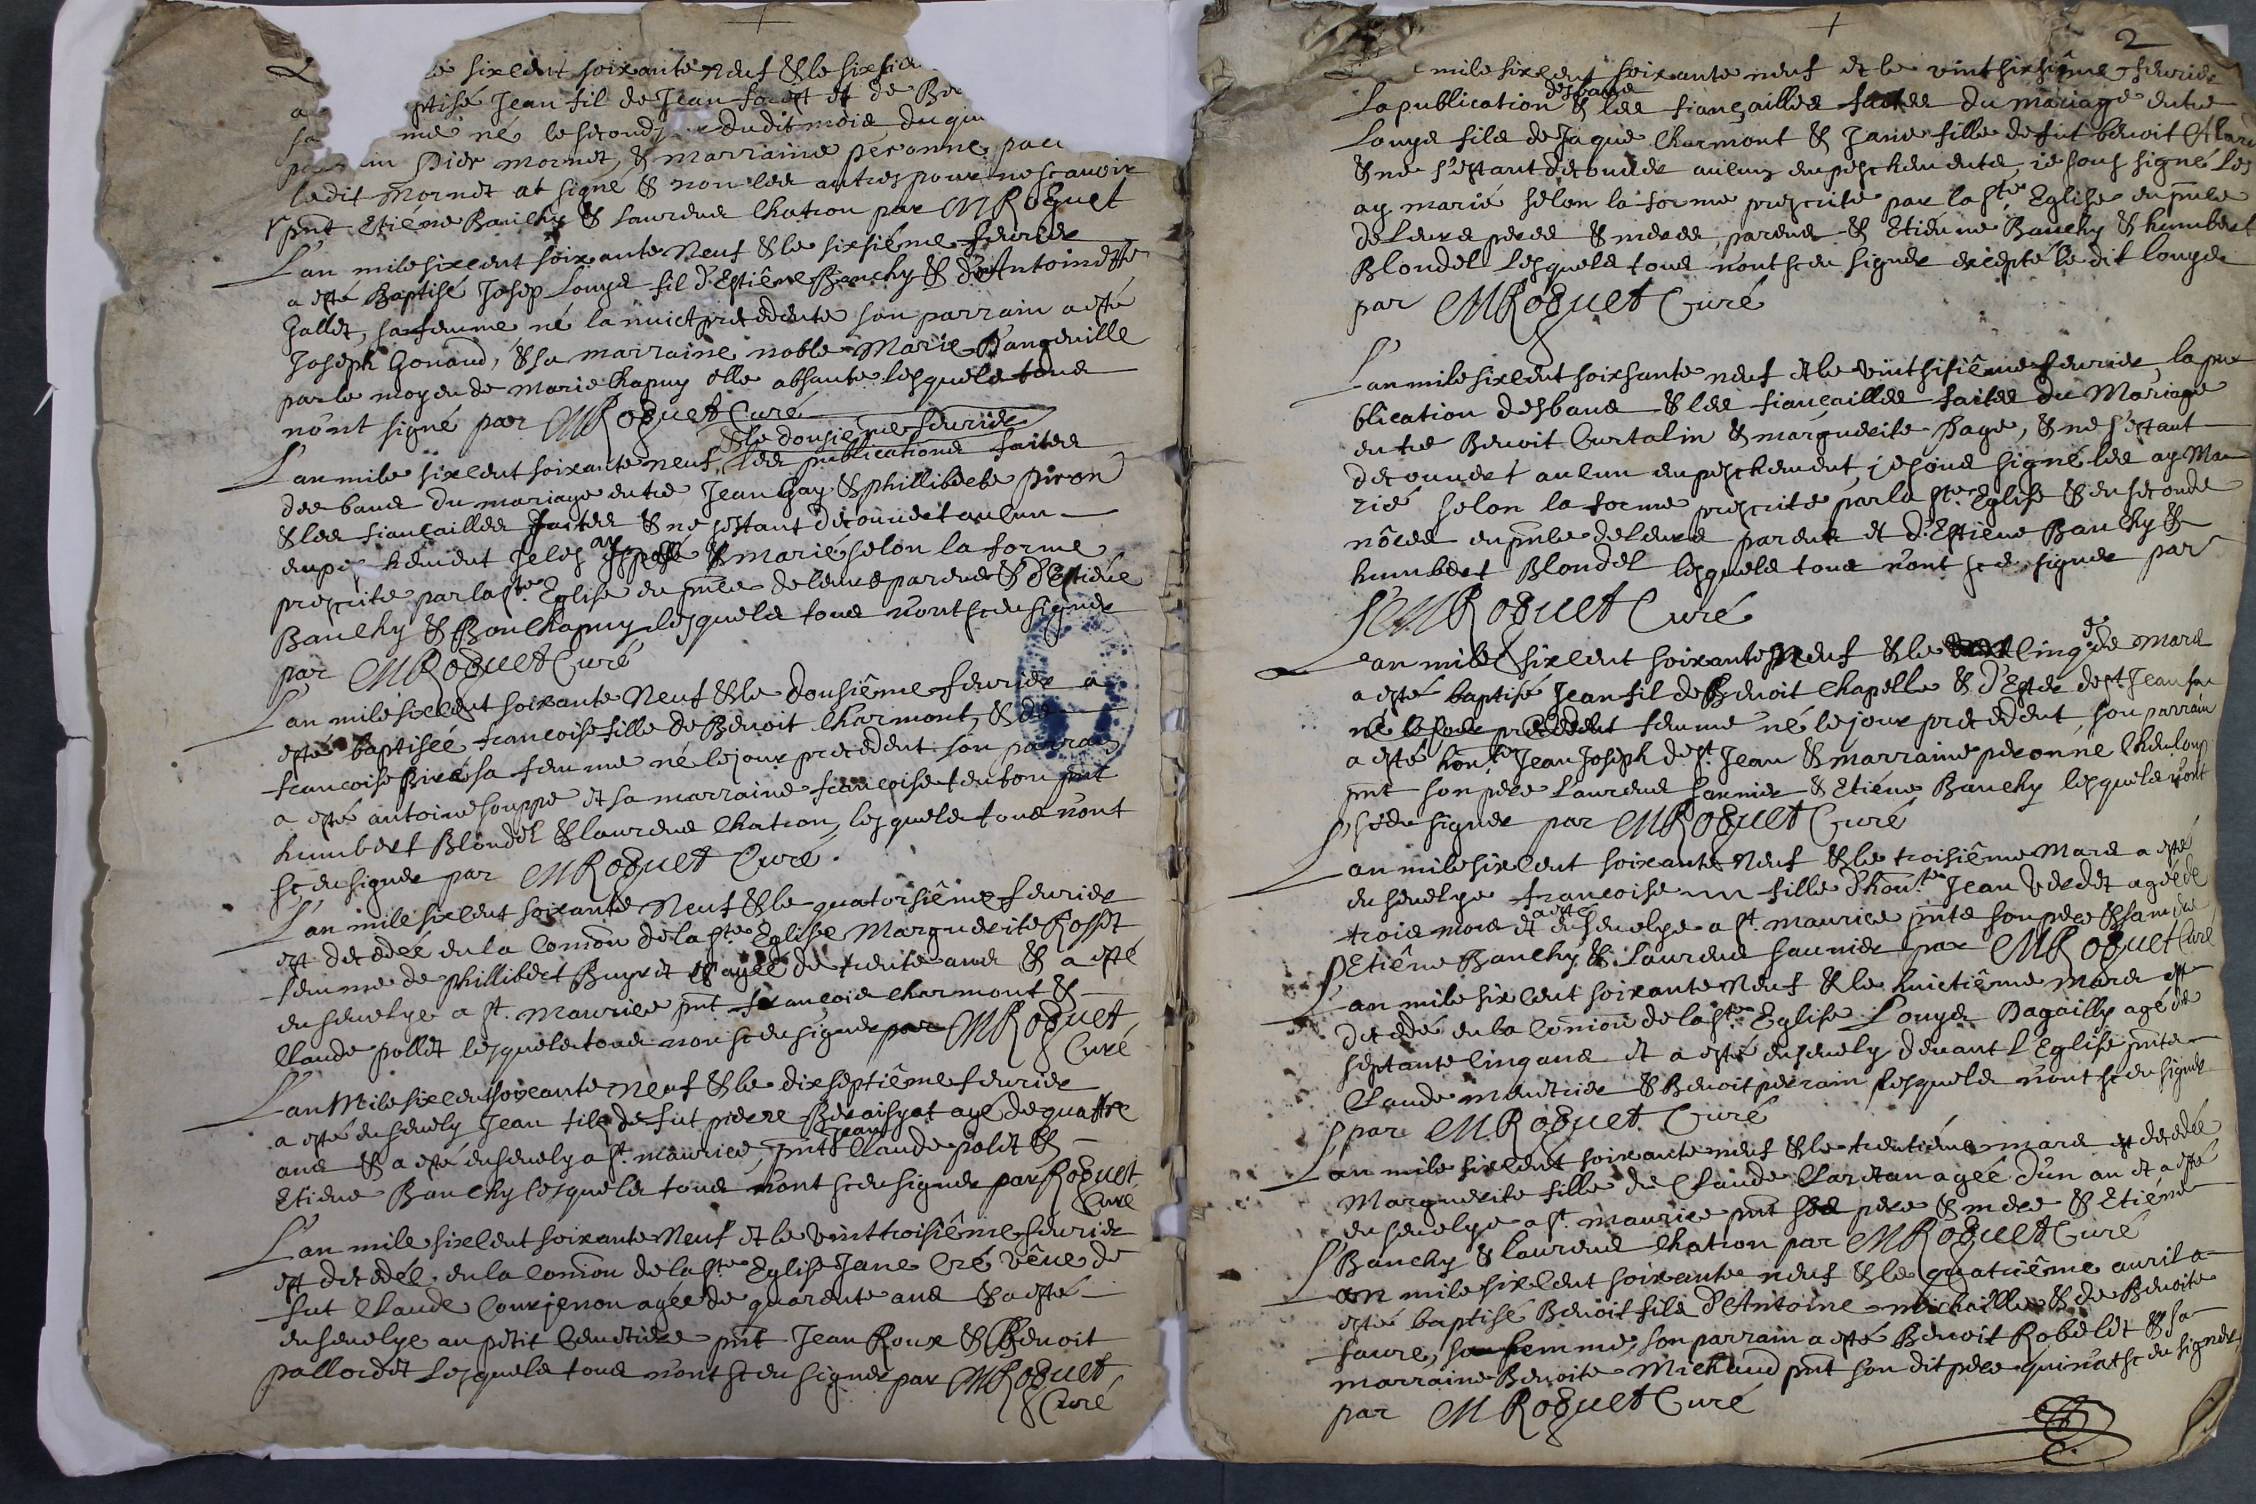 sixcent soixante neuf & le sixsie
ptisé Jean fil de Jean et de Be
me né le second du dit mois du qui
Pier mornet, & marraine peronne
ledit mornet at signé & non les autres pour ne scavoir
pnt Etiene Bauchy & Laurens Chatron par M Roguet
L'an mile sixcent soixante Neuf & le sixsiême feurier
a esté Baptisé Josep Louys fil d'Estiêne Bauchy & d'Antoinette
Gallet, sa femme né la nuict precedente son parrain a esté
Joseph Gonand, & sa marraine noble Marie D'angeuille
par le moyen de Marie Chapuy elle absante lesquels tous
n'ont signé par M Roguet Curé
& le dousieme feurier
L'an mile sixcent soixante neuf, les publications faites
des bans du mariage entre Jean Gay & philliberte Piron
& les fiançailles faites & ne s'estant découuert aucun
empeschement Je les ay & marié selon la forme
prescrite par la ste Eglise en pnce de leurs parens & d'Estiêne
Bauchy & Bon Chapuy lesquels tous n'ont sceu signer
par M Roguet Curé
L'an mile sixcent soixante Neuf & le dousiême feurier a
esté baptisée francoise fille de Benoit Charmont, & de
francoise sa femme né le jour precedent son parrain
a esté antoine souppe et sa marraine francoise tenton pnt
humbert Blondel & laurens Chatron, lesquels tous n'ont
sceu signer par M Roguet Curé.
L'an mile sixcent soixante Neuf & le quatorsiême feurier
est decedeé en la Comion de la ste Eglise Marguerite Rosset
femme de phillibert Buyret & ageé de trente ans & a esté
enseuelye a st. maurice pnt françois Charmont &
Claude pollet lesquels tous n'on sceu signer par M Roguet
Curé
L'an Mile sixcent soixante Neuf & le dixseptiême feurier
a esté enseuely Jean fils de fut pierre agé de quattre
ans & a esté enseuely a st. maurice, pnts Jean Claude polet &
Etiene Bauchy lesquels tous n'ont sceu signer par Roguet
Curé
L'an mile sixcent soixante Neuf et le vint troisiême feurier
est decedéé en la Comion de la ste Eglise Jane Cré vêue de
fut Claude Courjenon ageé de quarente ans & a esté
enseuelye au petit Cemetiere pnt Jean Roux & Benoit
pallordet Lesquels tous n'ont sceu signer par M Roguet
Curé
2
mile sixcent soixante neuf et le vint sixsiême feurier
des bans
La publication & les fiançailles faites du mariage entre
Louys fils de Jaque Charmont & Jane fille de fut benoit
& ne s'estant découuert aucuns empeschements, je sous signé Les
ay marié selon la forme prescrite par la ste Eglise en pnce
de Leurs peres & meres, parens & Etiénne Bauchy & humbert
Blondel Lesquels tous n'ont sceu signer excepté le dit Louys
par M Roguet Curé
L'an mile sixcent soixsante neuf et le vint sisiême feurier, la pu
blication des bans & les fiançailles faites du Mariage
entre Benoit Curtalin & marguerite page, & ne s'estant
decouuert aucun empeschement je sous signé les ay Ma
rié selon la forme prescrite par la ste Eglise & en seconde
nôces en pnce de leurs parens et d'Estiene Bauchy &
humbert Blondel lesquels tous n'ont sceu signer par
M Roguet Curé
L'an mile sixcent soixante Neuf & le cinq de mars
a esté baptisé Jean fil de Benoit Chapelle & d'Ester de st Jean sa
né le jour precedent femme né le jour precedent son parrain
a esté honte Jean Joseph de st Jean & marraine peronne
pnt son pere Laurens saunier & Etiéne Bauchy lesquels n'ont
sceu signer par M Roguet Curé
L'an mile sixcent soixante Neuf & le troisiême Mars a esté
enseuelye francoise fille d'honte Jean Verdet agéé de
trois mois et a esté enseuelye a st. maurice pnts son pere & sa mere
Etiêne Bauchy & Laurens saunier par M Roguet Curé
L'an mile sixcent soixante Neuf & le huictiême Mars est
decedé en la Comion de la ste Eglise Louys Dagailly agé de
septante cinq ans et a esté enseuely deuant L'Eglise pnts
Claude meutrier & Benoit perrain lesquels n'ont sceu signer
par M Roguet Curé
L'an mile sixcent soixante neuf & le trentiéme mars est decedéé
Marguerite fille de Claude Carétan ageé d'un an et a esté
enseuelye a st. maurice pnt pere & mere & Etiéne
Bauchy & laurens Chatron par M Roguet Curé
L'an mile sixcent soixante neuf & le quatriême auril a
esté baptisé Benoit fils d'Antoine michaille & de Benoite
faure, sa femme, son parrain a esté Benoit Robelet & sa
marraine Benoite Michaud pnt son dit pere qui n'at sceu signer
par M Roguet Curé